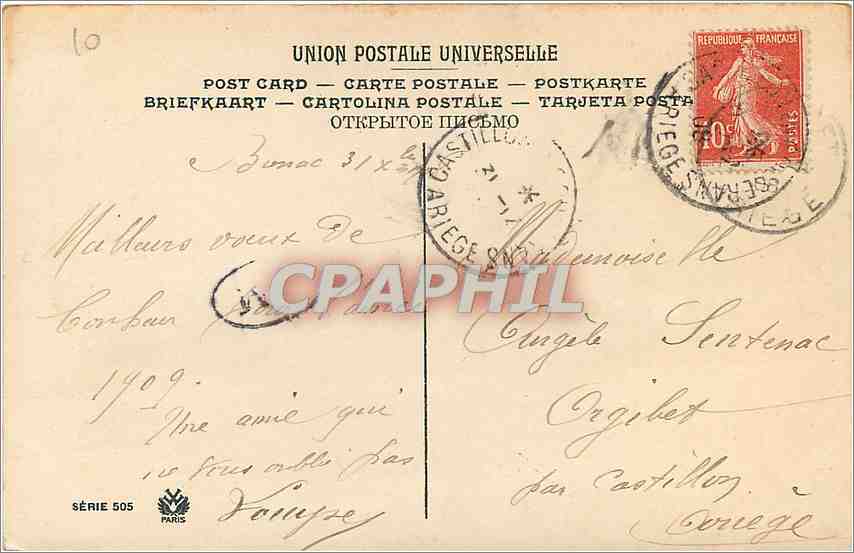 10
UNION POSTALE UNIVERSELLE
POST CARD — CARTE POSTALE — POSTKARTE
BRIEFKAART — CARTOLINA POSTALE — TARJETA POSTA
ОТКРЫТОЕ ПИСЬМО
RÉPUBLIQUE FRANÇAISE
10c POSTES
CASTILLON
ARIEGE
ARIEGE
31 Xbre
Meilleurs vœux de
Bonheur pour
1909.
Une amie qui
ne vous oublie pas
Mademoiselle
Angèle Sentenac
Orgibet
par Castillon
Ariège
CPAPHIL
SÉRIE 505
PARIS